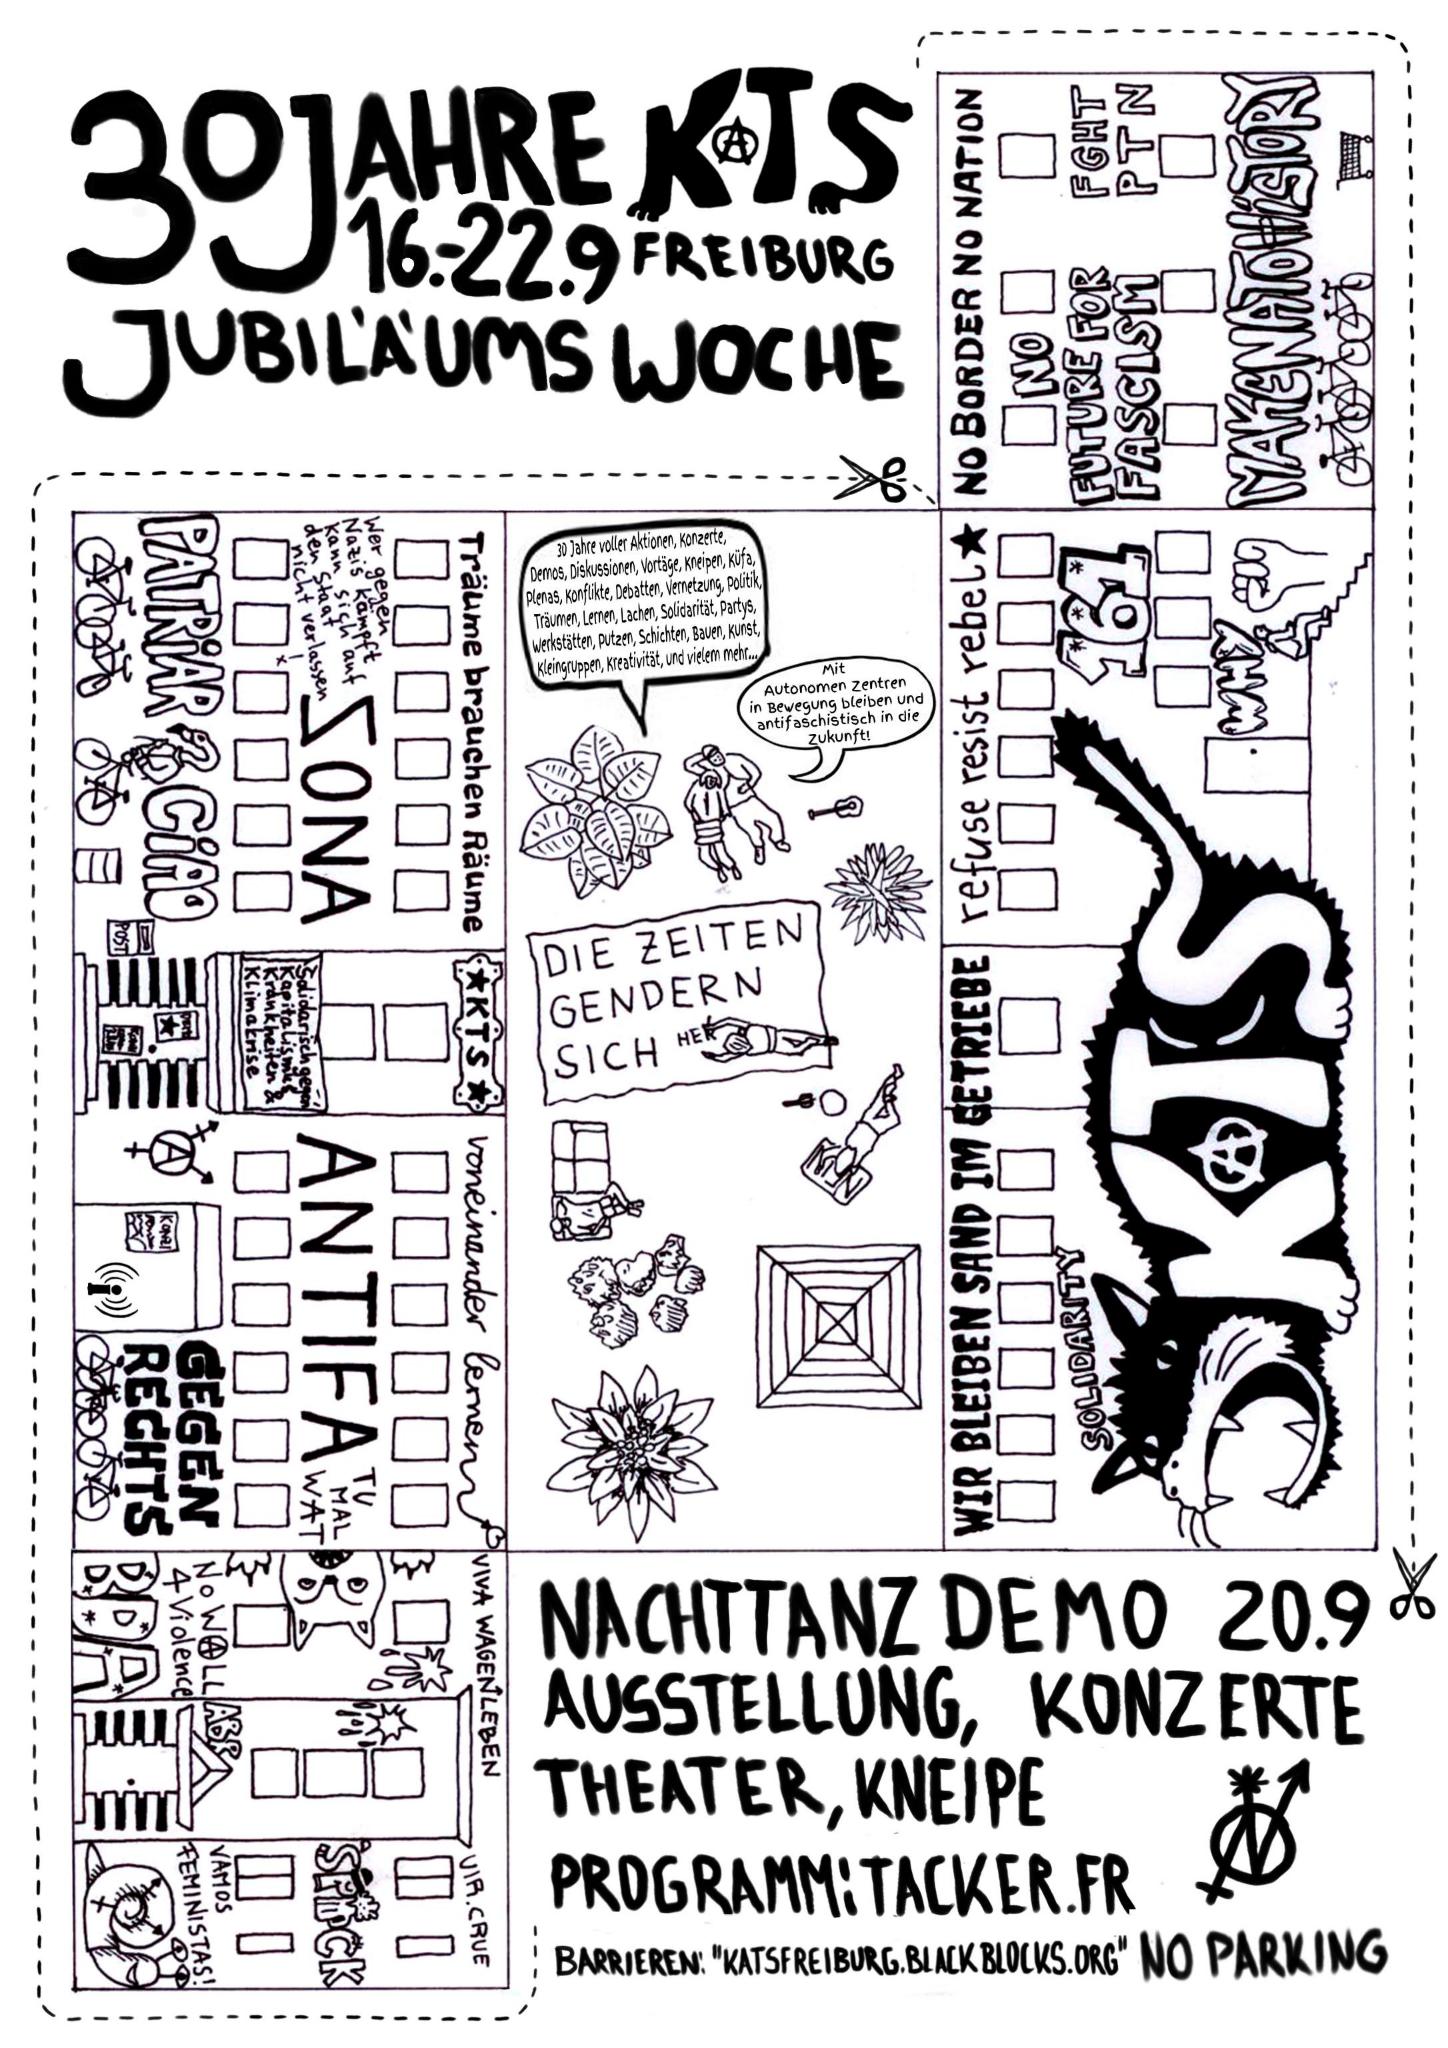 30 JAHRE KTS
16.-22.9 FREIBURG
JUBILÄUMS WOCHE
NO BORDER NO NATION
FGHT
PTN
NO
FUTURE FOR
FASCISM
MAKE NATO HISTORY
30 Jahre voller Aktionen, Konzerte,
Demos, Diskussionen, Vortäge, Kneipen, Küfa,
Plenas, Konflikte, Debatten, Vernetzung, Politik,
Träumen, Lernen, Lachen, Solidarität, Partys,
Werkstätten, Putzen, Schichten, Bauen, Kunst,
Kleingruppen, Kreativität, und vielem mehr...
Mit
Autonomen Zentren
in Bewegung bleiben und
antifaschistisch in die
Zukunft!
DIE ZEITEN
GENDERN
SICH HER
Träume brauchen Räume
Wer gegen
Nazis kämpft
kann sich auf
den Staat
nicht verlassen
!
ZONA
PATRIAR
CiAO
POST
★ KTS ★
Solidarisch gegen
Kapitalismus
Krankheiten &
Klimakrise
voneinander lernen
ANTIFA
TU
MAL
WAT
GEGEN
RECHTS
VIVA WAGENLEBEN
NO WALL
4 Violence
ABR
VIA.CRUE
STUCK
VAMOS
FEMINISTAS!
refuse resist rebel ★
161
WIR BLEIBEN SAND IM GETRIEBE
SOLIDARITY
KTS
NACHTTANZ DEMO 20.9
AUSSTELLUNG, KONZERTE
THEATER, KNEIPE
PROGRAMM: TACKER.FR
BARRIEREN: "KATSFREIBURG.BLACKBLOCKS.ORG" NO PARKING